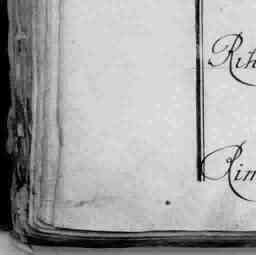 Rith
Rim